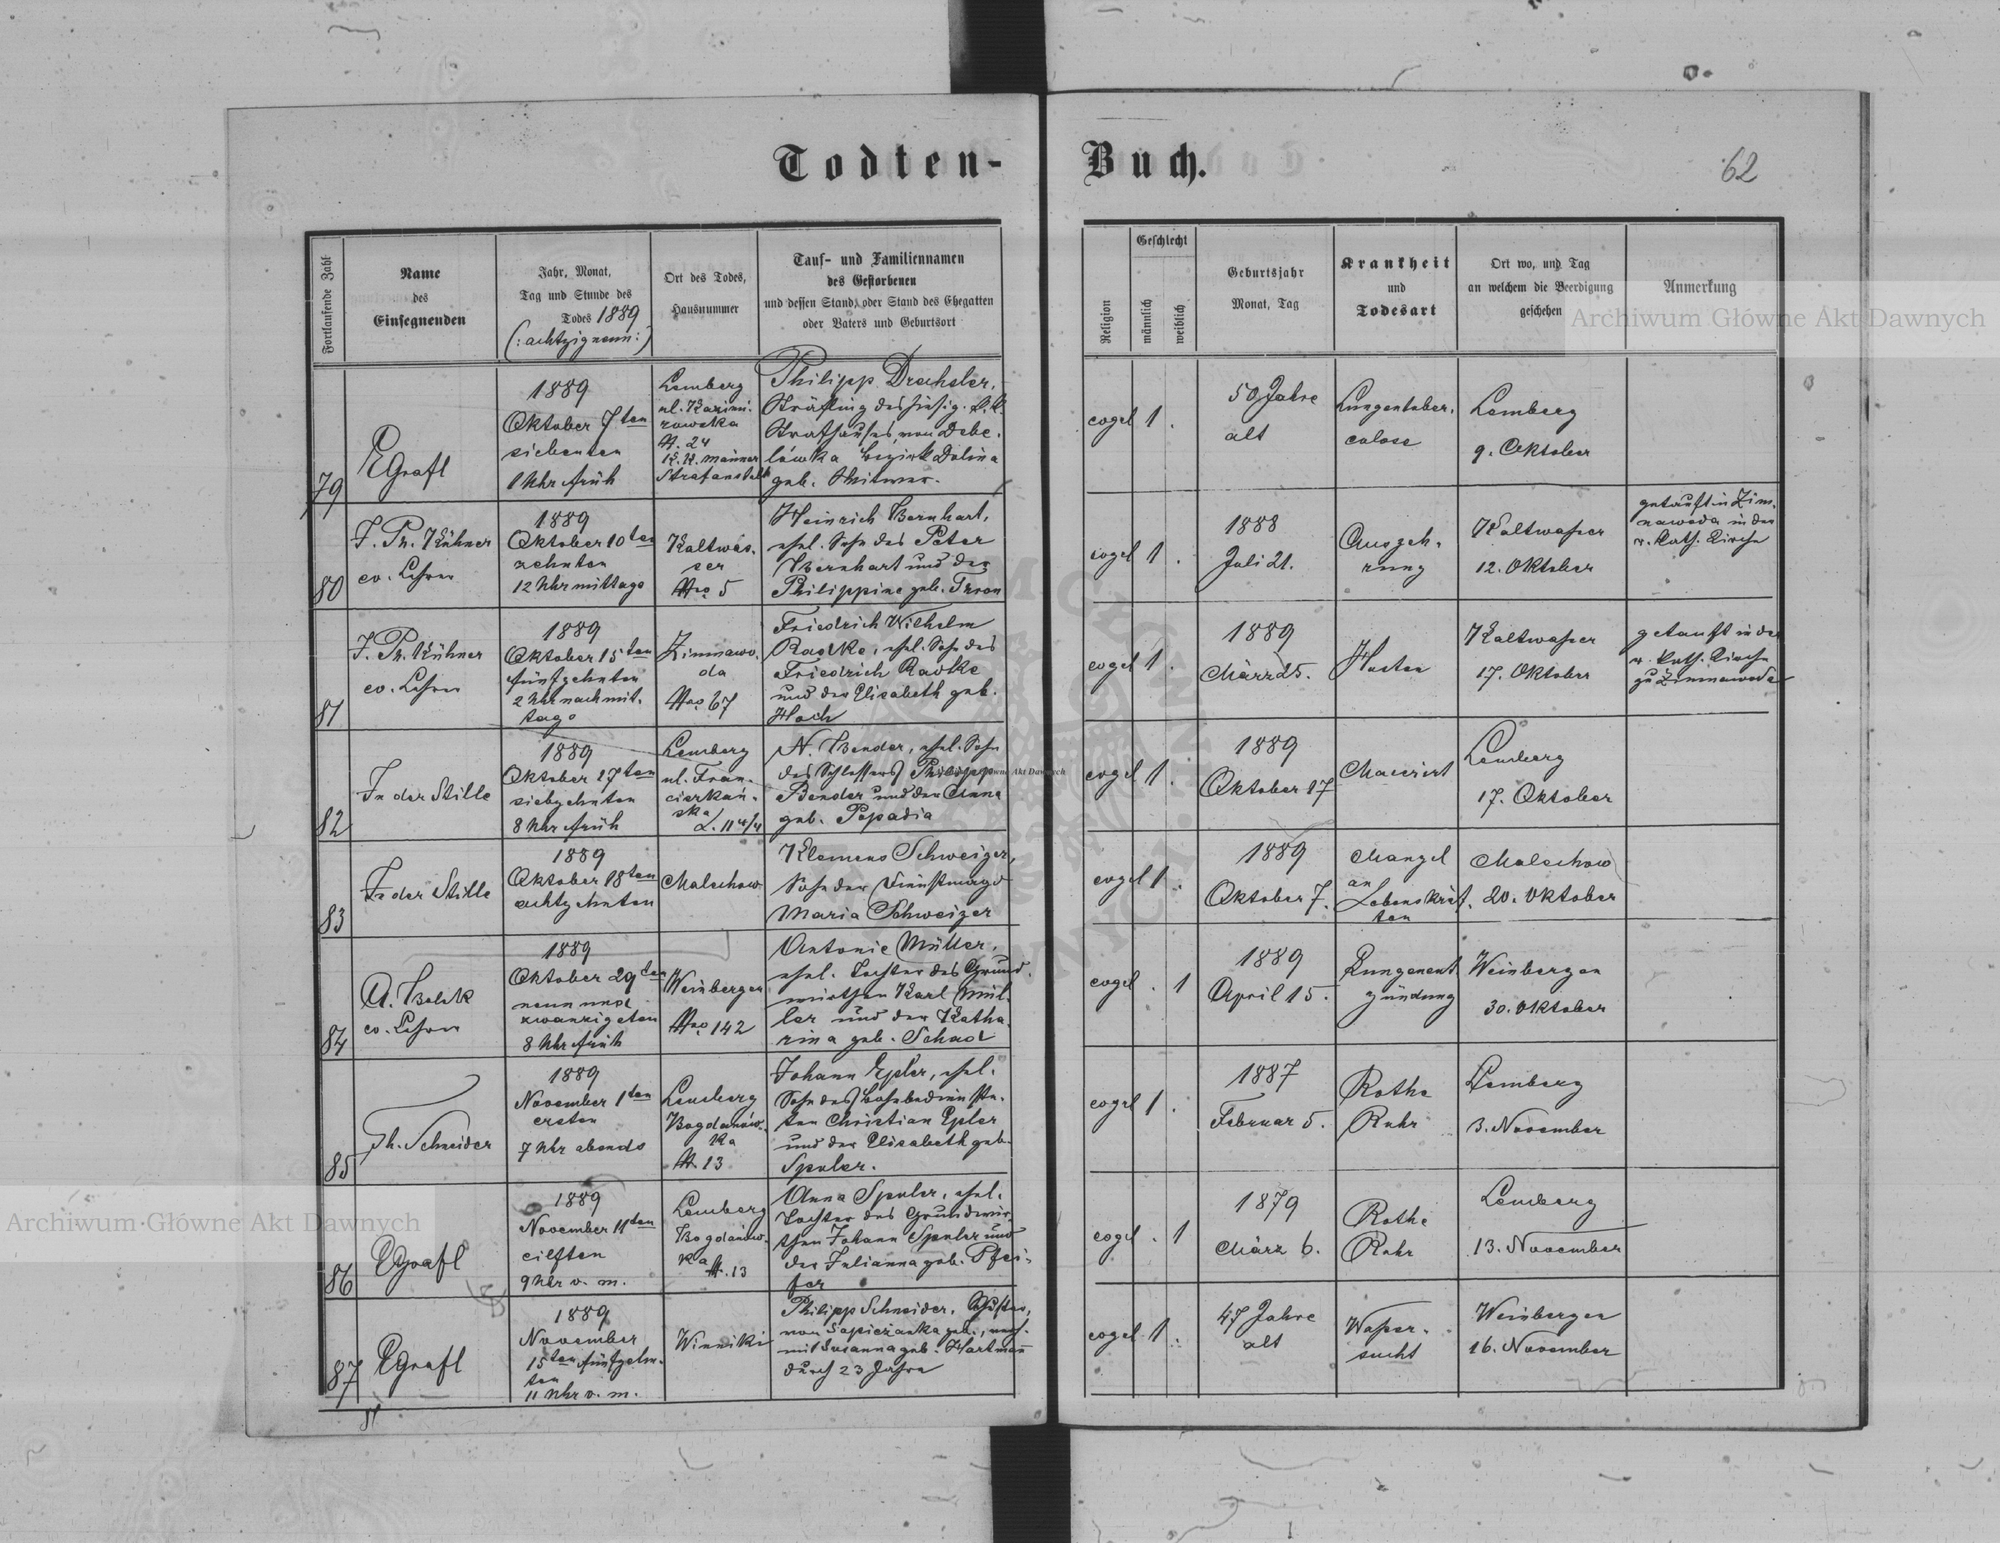 Todten-
Buch.
62
Fortlaufende Zahl
Name
des
Einsegnenden
Jahr, Monat,
Tag und Stunde des
Todes 1889
(:achtzigneun:)
Ort des Todes,
Hausnummer
Tauf- und Familiennamen
des Gestorbenen
und dessen Stand, oder Stand des Ehegatten
oder Vaters und Geburtsort
Religion
Geschlecht
männlich
weiblich
Geburtsjahr
Monat, Tag
Krankheit
und
Todesart
Ort wo, und Tag
an welchem die Beerdigung
geschehen
Anmerkung
79
EGrafl
1889
Oktober 7ten
siebenten
1 Uhr früh
Lemberg
ul. Kazimi-
rowska
N. 24
K. K. Männer
Strafanstalt
Philipp Drechsler,
Sträfling des hiesig. k. k.
Strafhauses, von Debe-
lówka Bezirk Dolina
geb. Witwer.
evgel 1 .
50 Jahre
alt
Lungentuber-
culose
Lemberg
9. Oktober
80
J. Ph. Kühner
ev. Lehrer
1889
Oktober 10ten
zehnten
12 Uhr mittags
Kaltwas-
ser
Nro 5
Heinrich Bernhart,
ehel. Sohn des Peter
Bernhart und der
Philippine geb. Tron
evgel 1 .
1888
Juli 21.
Auszeh-
rung
Kaltwasser
12. Oktober
getauft in Zim-
nawoda in der
r. kath. Kirche
81
J. Ph. Kühner
ev. Lehrer
1889
Oktober 15ten
fünfzehnten
2 Uhr nachmit-
tags
Zimnawo-
da
Nro 67
Friedrich Wilhelm
Radke, ehel. Sohn des
Friedrich Radke
und der Elisabeth geb.
Hoch
evgel 1 .
1889
März 25.
Husten
Kaltwasser
17. Oktober
getauft in der
r. kath. Kirche
zu Zimnawoda
82
In der Stille
1889
Oktober 17ten
siebzehnten
8 Uhr früh
Lemberg
ul. Fran-
ciszkań-
ska
L. 11 4/4
N. Bender, ehel. Sohn
des Schlossers Philipp
Bender und der Anna
geb. Popadia
evgel 1 .
1889
Oktober 17
Lemberg
17. Oktober
83
In der Stille
1889
Oktober 18ten
achtzehnten
Malechow
Klemens Schweizer,
Sohn der Dienstmagd
Maria Schweizer
evgel 1 .
1889
Oktober 7.
Mangel
an
Lebenskräf-
ten
Malechow
20. Oktober
84
A. Bolek
ev. Lehrer
1889
Oktober 29ten
neun und
zwanzigsten
8 Uhr früh
Weinbergen
Nro 142
Antonie Müller,
ehel. Tochter des Grund-
wirthen Karl Mül-
ler und der Katha-
rina geb. Schad
evgel . 1
1889
April 15.
Lungenent-
zündung
Weinbergen
30. Oktober
85
Th. Schneider
1889
November 1ten
ersten
7 Uhr abends
Lemberg
Bogdanów-
ka
N. 13
Johann Epler, ehel.
Sohn des Bahnbedienste-
ten Christian Epler
und der Elisabeth geb.
Spuler.
evgel 1 .
1887
Februar 5.
Rothe
Ruhr
Lemberg
3. November
86
EGrafl
1889
November 11ten
eilften
9 Uhr v. m.
Lemberg
Bogdanów-
ka
N. 13
Anna Spuler, ehel.
Tochter des Grundwir-
then Johann Spuler und
der Julianna geb. Pfei-
fer
evgel . 1
1879
März 6.
Rothe
Ruhr
Lemberg
13. November
87
EGrafl
1889
November
15ten fünfzehn-
ten
11 Uhr v. m.
Winniki
Philipp Schneider, Schuster,
von Sapieżanka geb., verh.
mit Susanna geb. Hartmann
durch 23 Jahre
evgel 1 .
47 Jahre
alt
Wasser-
sucht
Weinbergen
16. November
Archiwum Główne Akt Dawnych
Archiwum Główne Akt Dawnych